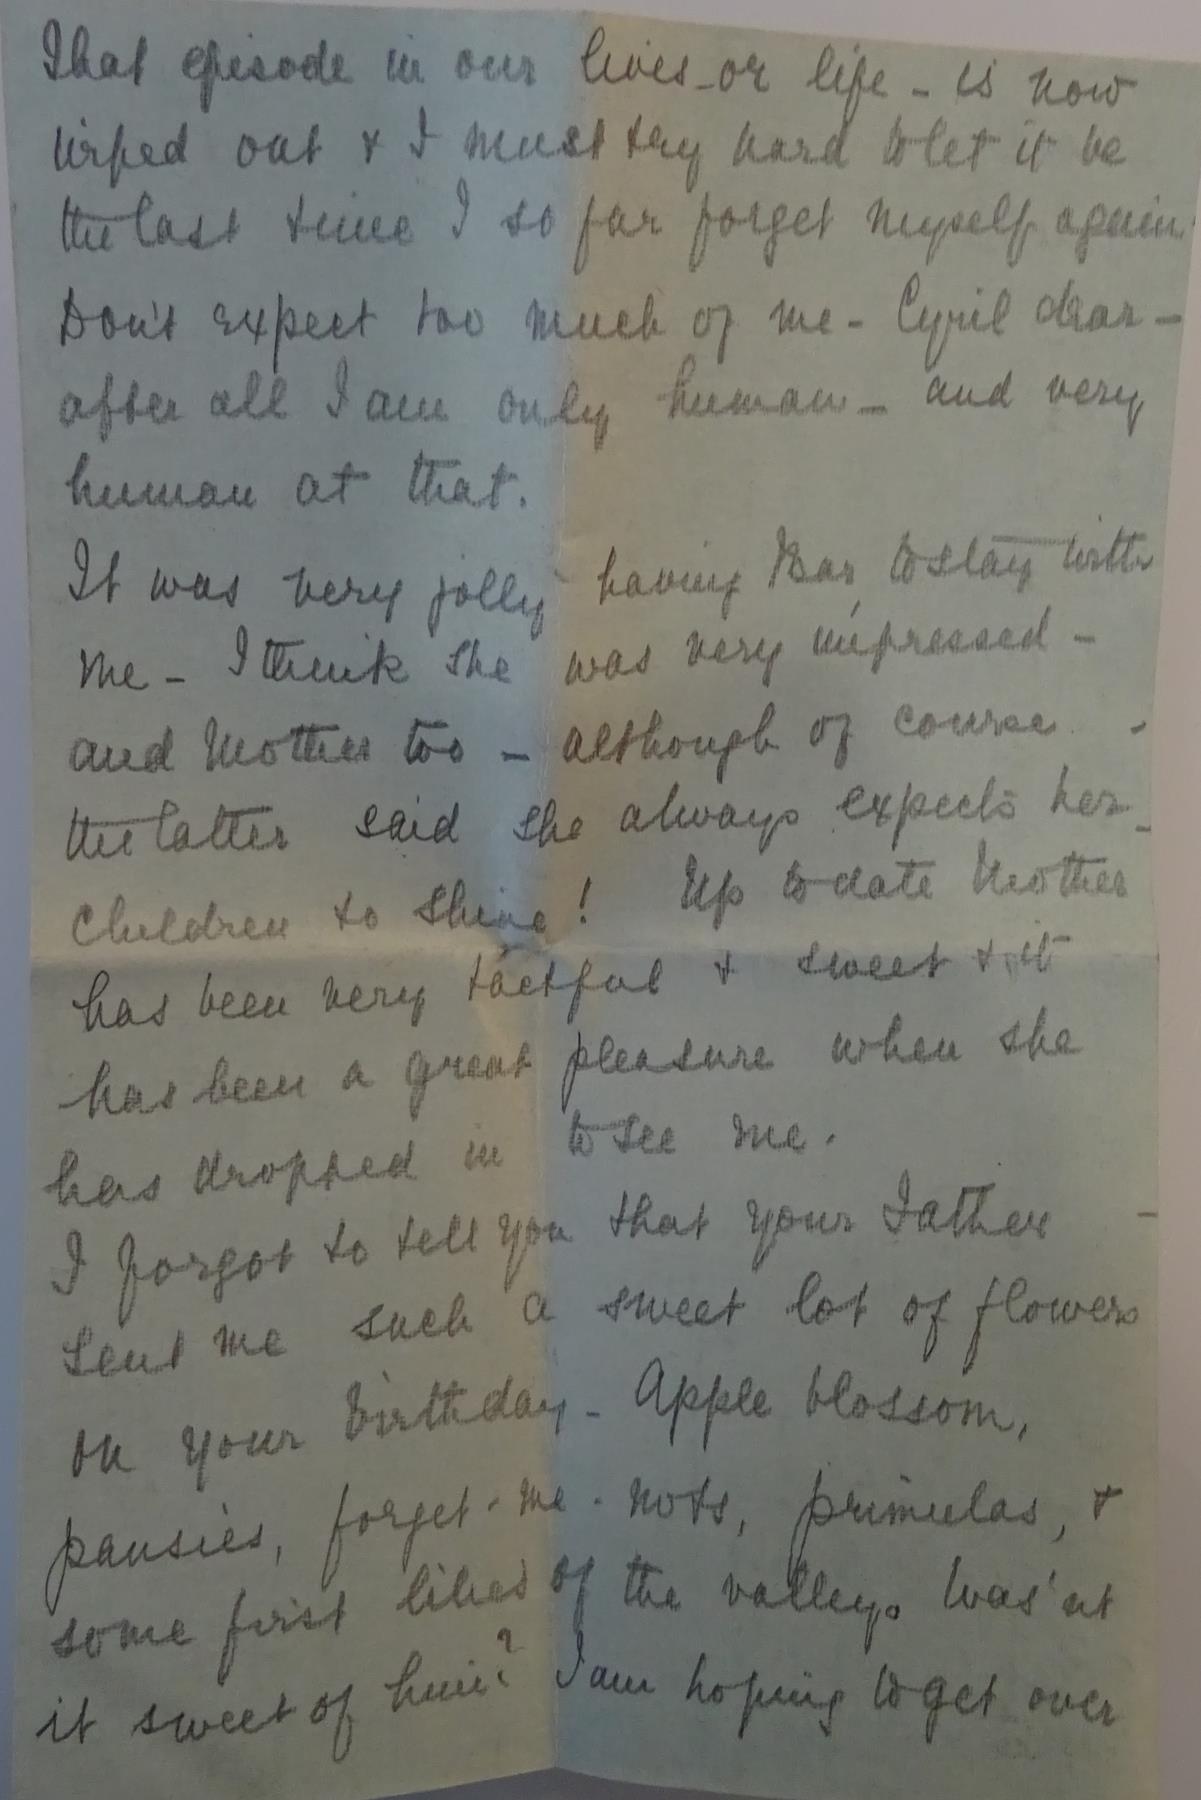 That episode in our lives - or life - is now
wiped out & I must try hard to let it be
the last time I so far forget myself again.
Don't expect too much of me - Cyril dear -
after all I am only human - and very
human at that.
It was very jolly having Bar to stay with
me - I think she was very impressed -
and Mother too - although of course -
the latter said she always expects her -
children to shine! Up to date Mother
has been very tactful & sweet & it
has been a great pleasure when she
has dropped in to see me.
I forgot to tell you that your Father -
sent me such a sweet lot of flowers
on your birthday - Apple blossom,
pansies, forget-me-nots, primulas, &
some first lilies of the valley. Was'nt
it sweet of him? I am hoping to get over